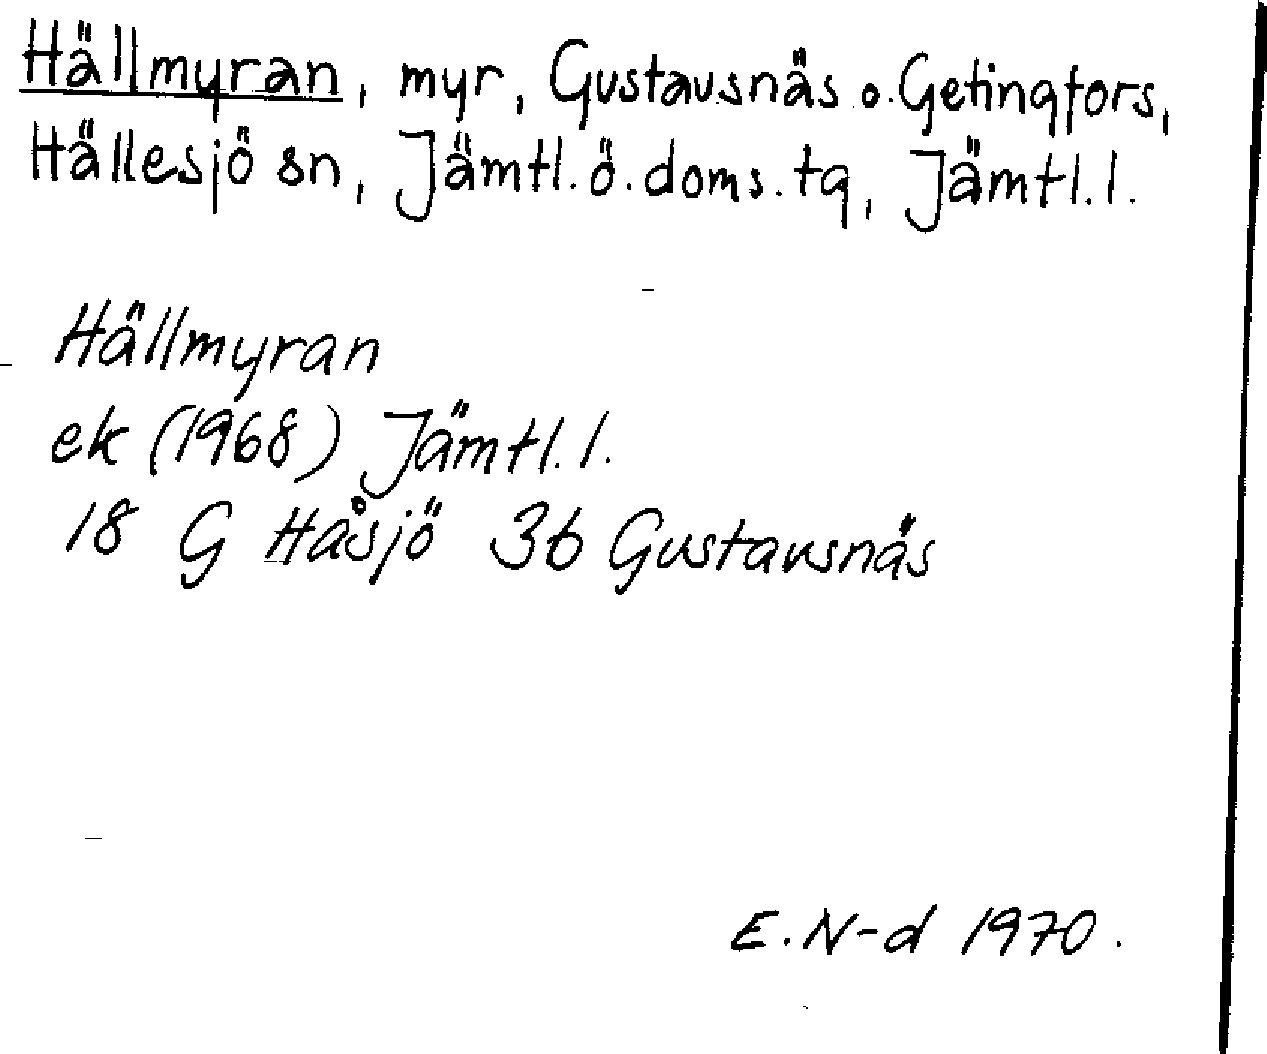 Hällmyran, myr, Gustavsnäs o. Getingfors,
Hällesjö sn, Jämtl. ö. doms. tg, Jämtl. l.
Hällmyran
ek (1968) Jämtl. l.
18 G Håsjö 3b Gustavsnäs
E. N-d 1970.